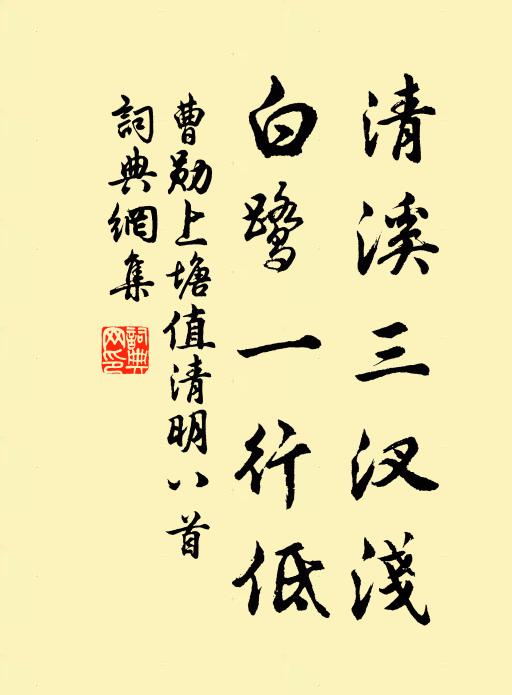 清溪三汊淺
白鹭一行低
曹勋上塘值清明八首
詞典網集
詞典網印